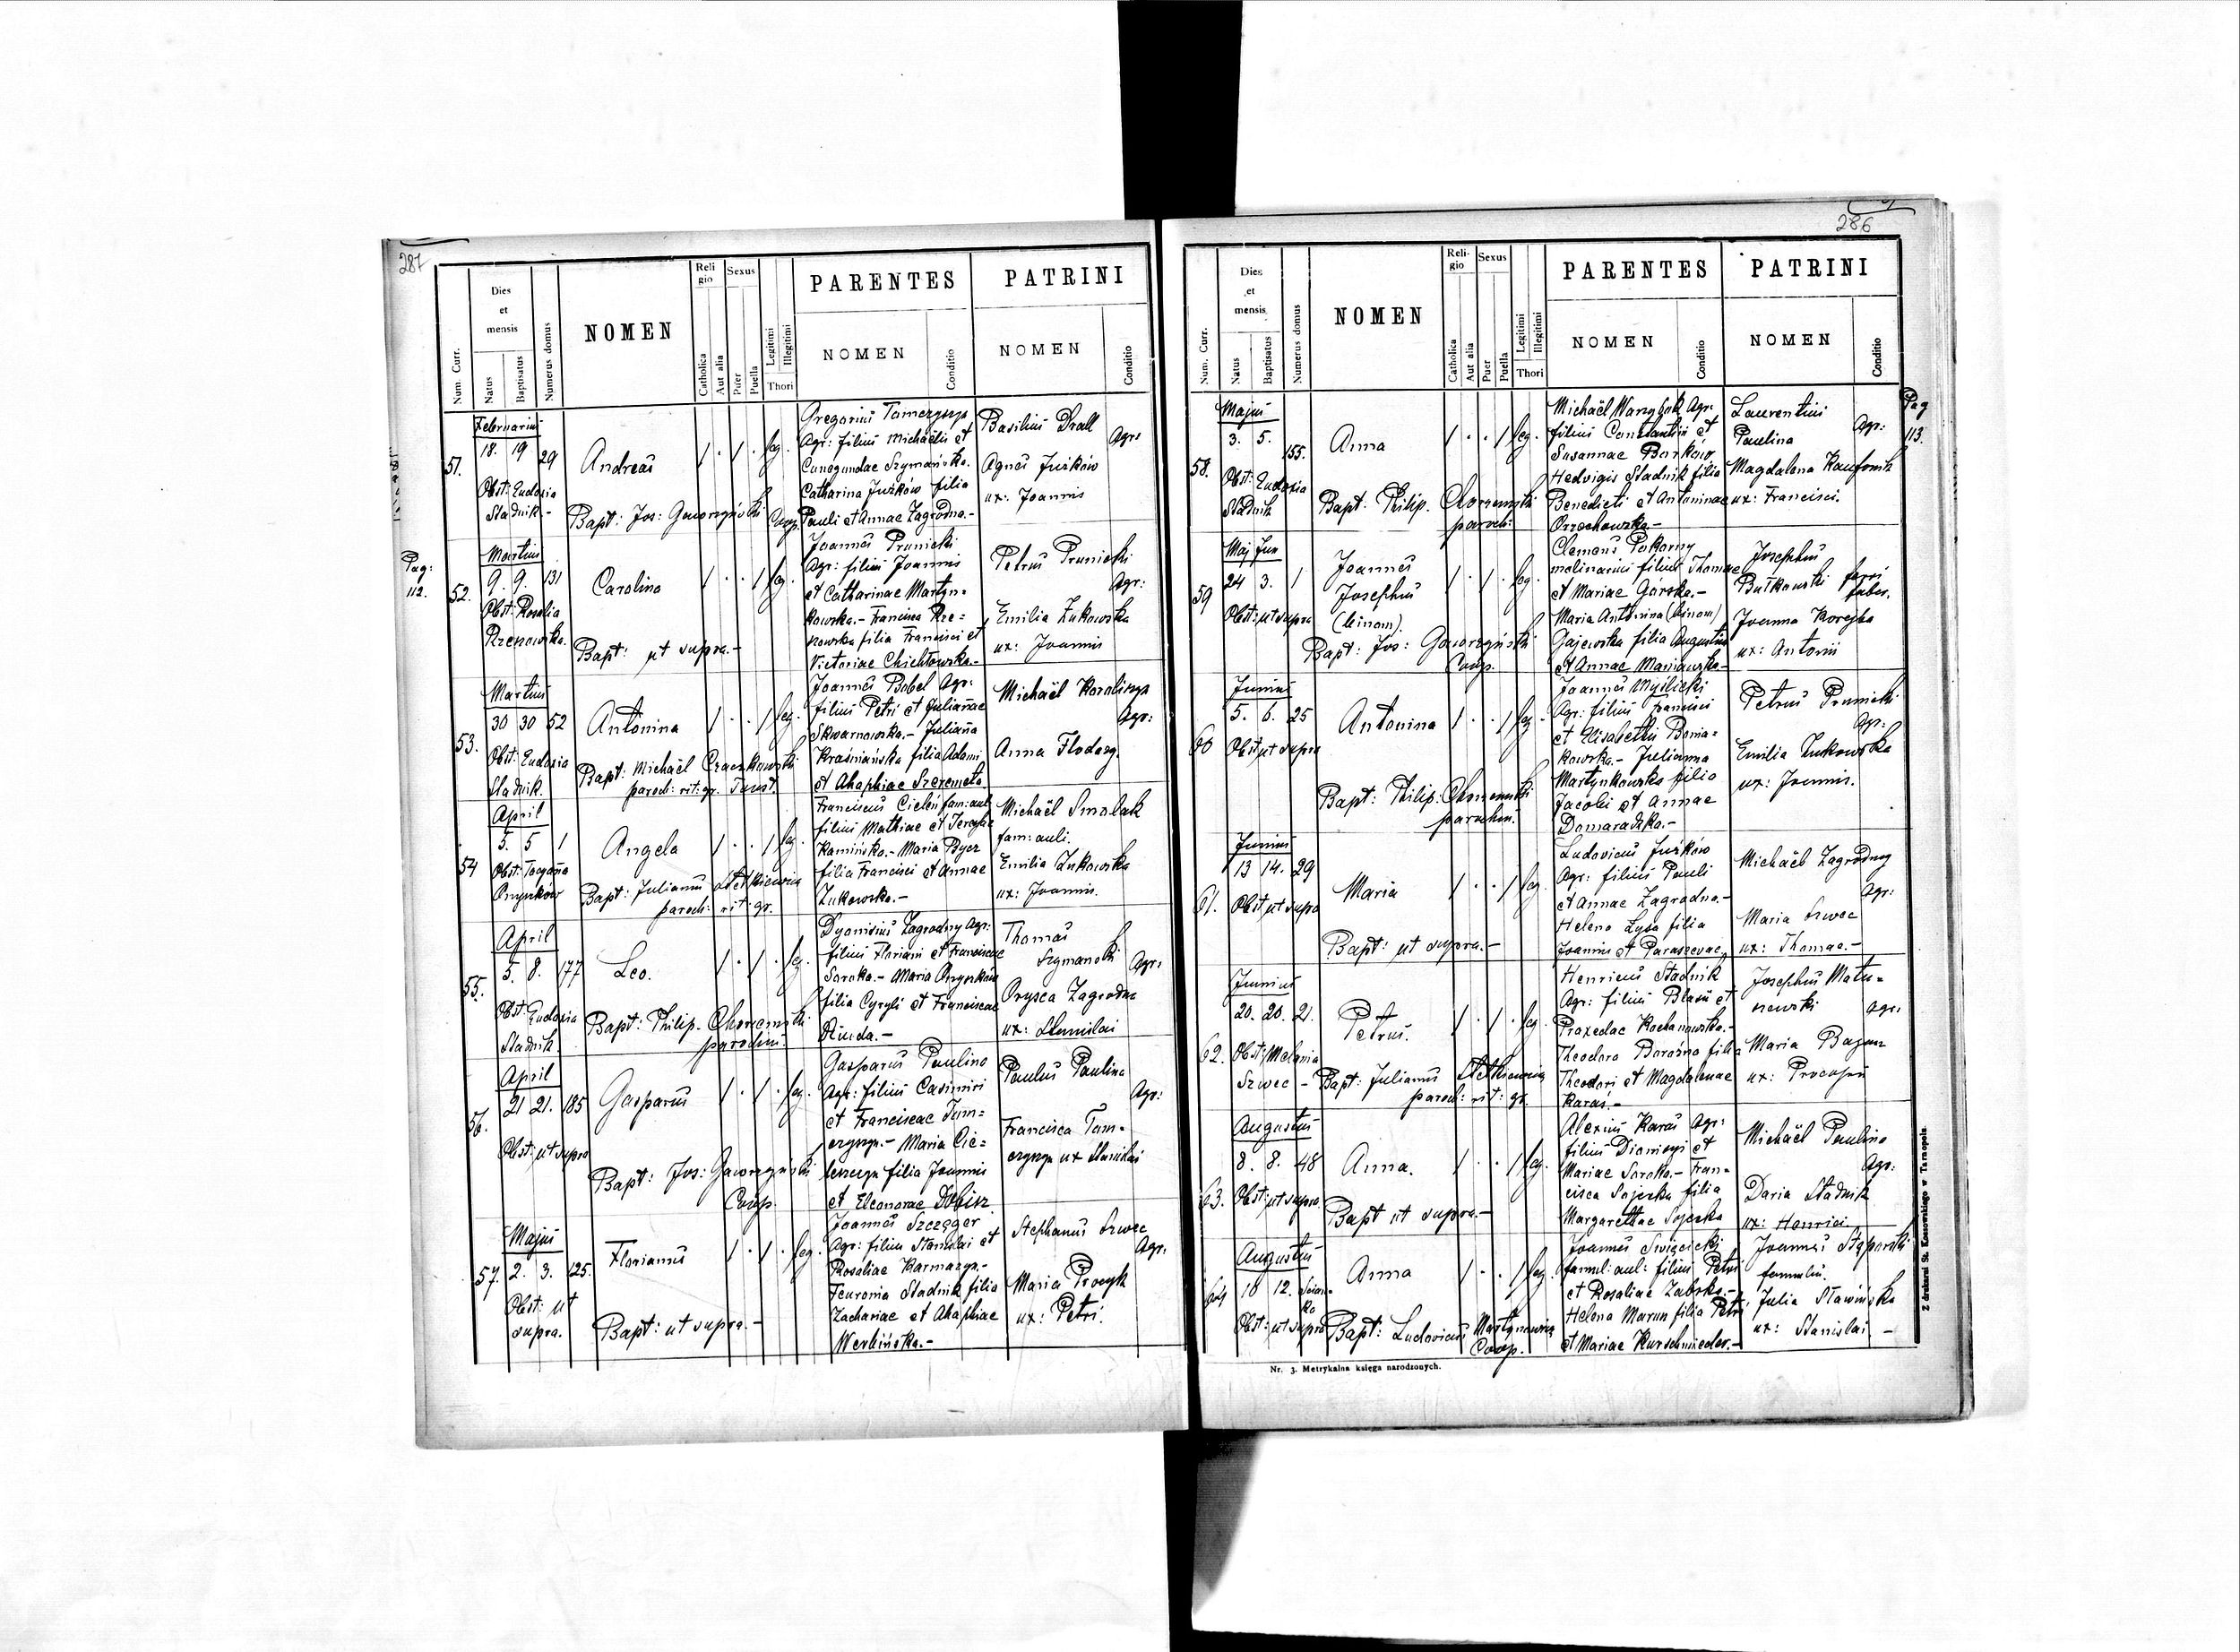 287
Num. Curr.
Dies
et
mensis
Natus
Baptisatus
Numerus domus
NOMEN
Reli
gio
Catholica
Aut alia
Sexus
Puer
Puella
Legitimi
Illegitimi
Thori
PARENTES
NOMEN
Conditio
PATRINI
NOMEN
Conditio
51.
Februarius
18. 19 29
Obst: Eudoxia
Stadnik.-
Andreas
leg.
Bapt: Jos: Gaworzyński Coop.
Gregorius Tomczyszyn
Agr: filius Michaëlis et
Cunegundae Szymańska.
Catharina Juźków filia
Pauli et Annae Zagrodna.-
Basilius Drall
Agr:
Agnes Juźków
ux: Joannis
Pag:
112.
52.
Martius
9. 9. 131
Obst: Rosalia
Rzepowska.
Carolina
leg.
Bapt: ut supra.-
Joannes Prunicki
Agr: filius Joannis
et Catharinae Martyn=
kowska.- Francisca Rze=
kowska filia Francisci et
Victoriae Chichłowska.-
Petrus Prunicki
Agr:
Emilia Żukowska
ux: Joannis
53.
Martius
30 30 52
Obst: Eudoxia
Stadnik.
Antonina
leg.
Bapt: Michaël Czaczkowski
paroch: rit: gr. Toust.
Joannes Bobel Agr:
filius Petri et Julianae
Skwarnowska.- Juliana
Kraśniańska filia Adami
et Ahaphiae Szeremeta.
Michaël Koraliszyn
Agr:
Anna Flodorz.
54
April
5. 5 1
Obst: Tacyana
Onyszków
Angela
leg.
Bapt: Julianus Stetkiewicz
paroch: rit: gr.
Franciscus Cieleń fam: aul.
filius Mathiae et Teresae
Kamińska.- Maria Bycz
filia Francisci et Annae
Żukowska.-
Michaël Smolak
fam: auli.
Emilia Żukowska
ux: Joannis.
55.
April
5. 8. 177
Obst: Eudoxia
Stadnik.
Leo.
leg.
Bapt: Philip. Chorzemski
parochus.
Dyonisius Zagrodny Agr:
filius Floriani et Franciscae
Soroka.- Maria Onyszków
filia Cyryli et Franciscae
Ruda.-
Thomas
Szymanski Agr:
Orysca Zagrodna
ux: Stanislai
56.
April
21 21. 185
Obst: ut supra
Gasparus
leg.
Bapt: Jos: Gaworzyński
Coop.
Gasparus Paulina
Agr: filius Casimiri
et Franciscae Tom=
czyszyn.- Maria Cie=
leszczyn filia Joannis
et Eleonorae Dobisz.
Paulus Paulina
Agr:
Francisca Tom=
czyszyn ux Stanislai
57.
Majus
2. 3. 125.
Obst: ut
supra.
Florianus
leg.
Bapt: ut supra.-
Joannes Szczęger
Agr: filius Stanislai et
Rosaliae Karmazyn.-
Feuronia Stadnik filia
Zachariae et Ahaphiae
Werbińska.-
Stephanus Szwec
Agr.
Maria Procyk
ux: Petri.
286
Num. Curr.
Dies
et
mensis
Natus
Baptisatus
Numerus domus
NOMEN
Reli-
gio
Catholica
Aut alia
Sexus
Puer
Puella
Legitimi
Illegitimi
Thori
PARENTES
NOMEN
Conditio
PATRINI
NOMEN
Conditio
Pag
113.
58.
Majus
3. 5. 155.
Obst: Eudoxia
Stadnik
Anna
leg.
Bapt: Philip. Chorzemski
paroch:
Michaël Warzybok Agr:
filius Constantii et
Susannae Borków
Hedvigis Stadnik filia
Benedicti et Antoninae
Orzechowska.-
Laurentius
Paulina Agr:
Magdalena Kaufonik
ux: Francisci.
59
Maj Jun
24 3. 1
Obst: ut supra
Joannes
Josephus
(binom)
leg.
Bapt: Jos: Gaworzyński
Coop.
Clemens Pokorny
molinarius filius Thomae
et Mariae Górska.-
Maria Antonina (binom)
Gajewska filia Augustini
et Annae Maniawska.-
Josephus
Bułkowski ferri
faber.
Joanna Korejba
ux: Antonii
60
Junius
5. 6. 25
Obst: ut supra
Antonina
leg.
Bapt: Philip: Chorzemski
parochus.
Joannes Myślicki
Agr: filius Francisci
et Elisabeth Bonia=
kowska.- Julianna
Martynkowska filia
Jacobi et Annae
Domaradzka.-
Petrus Prunicki
Agr:
Emilia Żukowska
ux: Joannis.
61.
Junius
13 14. 29
Obst: ut supra
Maria
leg.
Bapt: ut supra.-
Ludovicus Juźków
Agr: filius Pauli
et Annae Zagrodna.-
Helena Łysa filia
Joannis et Parascevae
Michaël Zagrodny
Agr:
Maria Szwec
ux: Thomae.-
62.
Junius
20. 20. 21.
Obst: Melania
Szwec -
Petrus.
leg.
Bapt: Julianus Stetkiewicz
paroch: rit: gr.
Henricus Stadnik
Agr: filius Blasii et
Praxedae Kochanowska.-
Theodora Boroźna filia
Theodori et Magdalenae
Karaś.-
Josephus Matu=
szewski Agr:
Maria Bazan
ux: Procopii
63.
Augustus
8. 8. 48
Obst: ut supra
Anna.
leg.
Bapt ut supra.-
Alexius Karaś Agr:
filius Dionisyi et
Mariae Soroka.- Fran=
cisca Sojecka filia
Margarethae Sojecka
Michaël Paulina
Agr:
Daria Stadnik
ux: Henrici
64
Augustus
10 12.
Obst: ut supra
Anna
leg.
Bapt: Ludovicus Martynowicz
Coop.
Joannes Święcicki
famul: aul: filius Petri
et Rosaliae Zabska.-
Helena Marun filia Petri
et Mariae Kurschmieder.-
Joannes Stąporski
famulus.
Julia Sławińska
ux: Stanislai -
Nr. 3. Metrykalna księga narodzonych.
Z drukarni St. Kossowskiego w Tarnopolu.